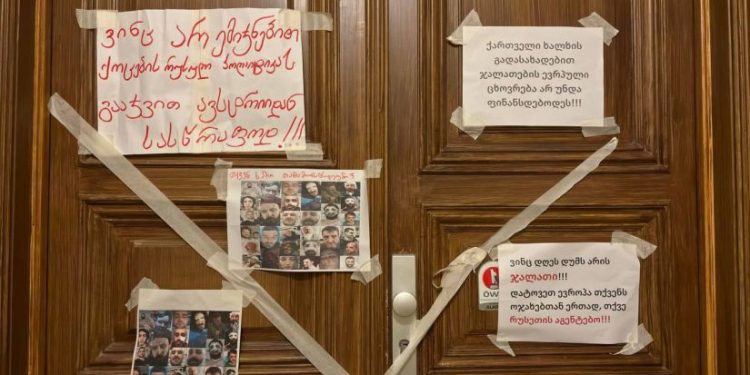 ვინც არ ემიჯნებით
ქოცების რუსულ პოლიტიკას
გააჯვით ავსტრიიდან
სასწრაფოდ!!!
ქართველი ხალხის
გადასახადებით
ჯალათების ევრპული
ცხოვრება არ უნდა
ფინანსდებოდეს!!!
ვინც დღეს დუმს არის
ჯალათი!!!
დატოვეთ ევროპა თქვენს
ოჯახებთან ერთად, თქვე
რუსეთის აგენტებო!!!
OW